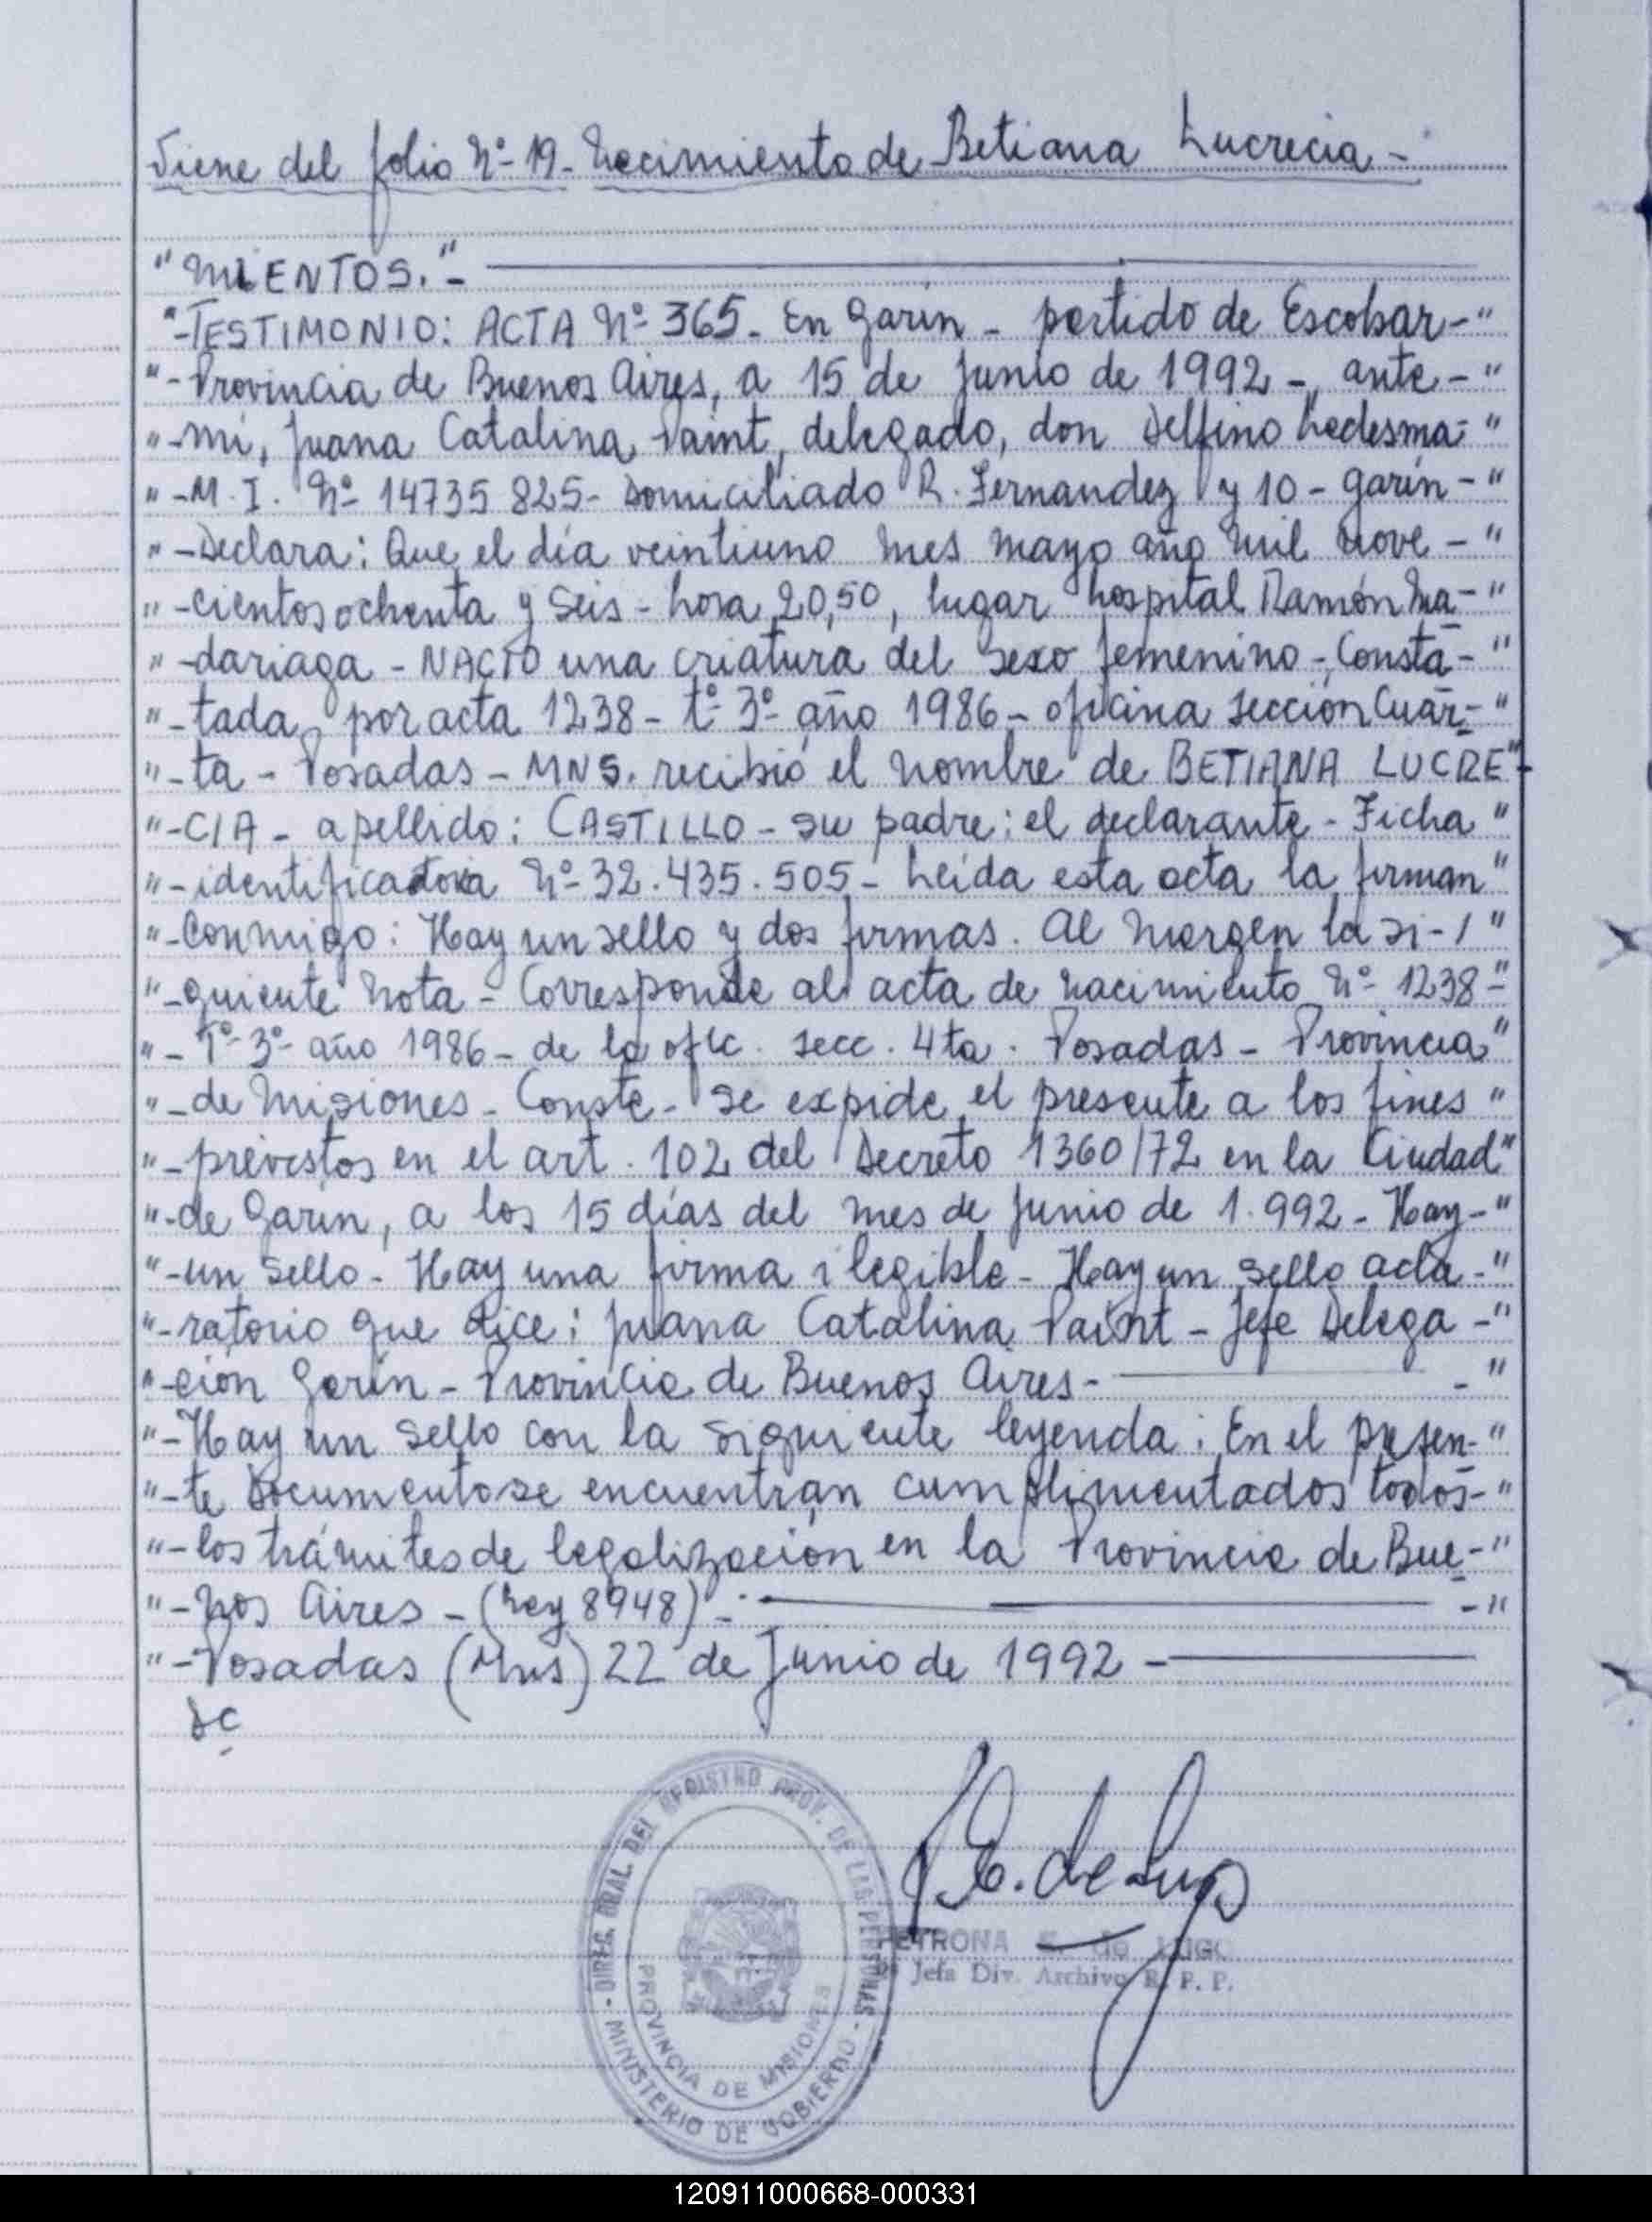 Viene del folio Nº 19 - Nacimiento de Betiana Lucrecia -
"MIENTOS." -
"-TESTIMONIO: ACTA Nº 365 - En Garín - partido de Escobar -"
"- Provincia de Buenos Aires, a 15 de Junio de 1992 - ante -"
"- mí, Juana Catalina Paint, delegado, don Delfino Ledesma -"
"- M. I. Nº 14735 825 - Domiciliado R. Fernandez y 10 - Garín -"
"- Declara: Que el día veintiuno mes mayo año mil nove -"
"- cientos ochenta y seis - hora 20,50, lugar hospital Ramón Ma -"
"- dariaga - NACIO una criatura del sexo femenino - Consta -"
"- tada por acta 1238 - tº 3º año 1986 - oficina sección Cuar -"
"- ta - Posadas - MNS. recibió el nombre de BETIANA LUCRE" -
"- CIA - apellido: CASTILLO - su padre: el declarante - Ficha "
"- identificatoria Nº 32.435.505 - Leída esta acta la firman "
"- Conmigo: Hay un sello y dos firmas. Al margen la si - / "
"- guiente nota - Corresponde al acta de nacimiento Nº 1238 -"
"- Tº 3º año 1986 - de la ofic. secc. 4ta. Posadas - Provincia "
"- de Misiones - Conste - se expide el presente a los fines "
"- previstos en el art. 102 del Decreto 1360/72 en la Ciudad "
"- de Garín, a los 15 días del mes de Junio de 1.992 - Hay -"
"- un sello - Hay una firma ilegible - Hay un sello acla -"
"- ratorio que dice: Juana Catalina Paint - Jefe Delega -"
"- ción Garín - Provincia de Buenos Aires - - "
"- Hay un sello con la siguiente leyenda: En el presen -"
"- te Documento se encuentran cumplimentados todos -"
"- los trámites de legalización en la Provincia de Bue -"
"- nos Aires - (Ley 8948) - - "
"- Posadas (Mns) 22 de Junio de 1992 -
DIREC. GRAL. DEL REGISTRO PROV. DE LAS PERSONAS
PROVINCIA DE MISIONES
- MINISTERIO DE GOBIERNO -
P. E. de Lugo
PETRONA E. de LUGO
Jefa Div. Archivo R. P. P.
120911000668-000331